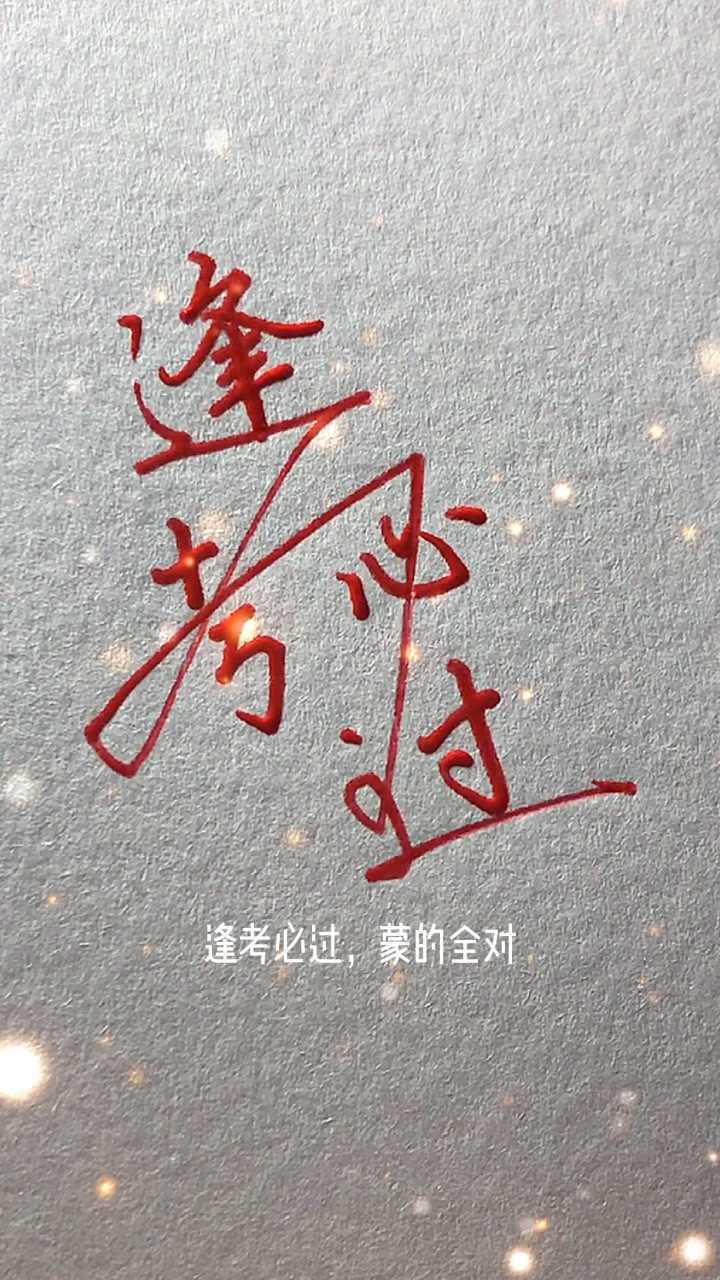 逢
考必
过
逢考必过，蒙的全对